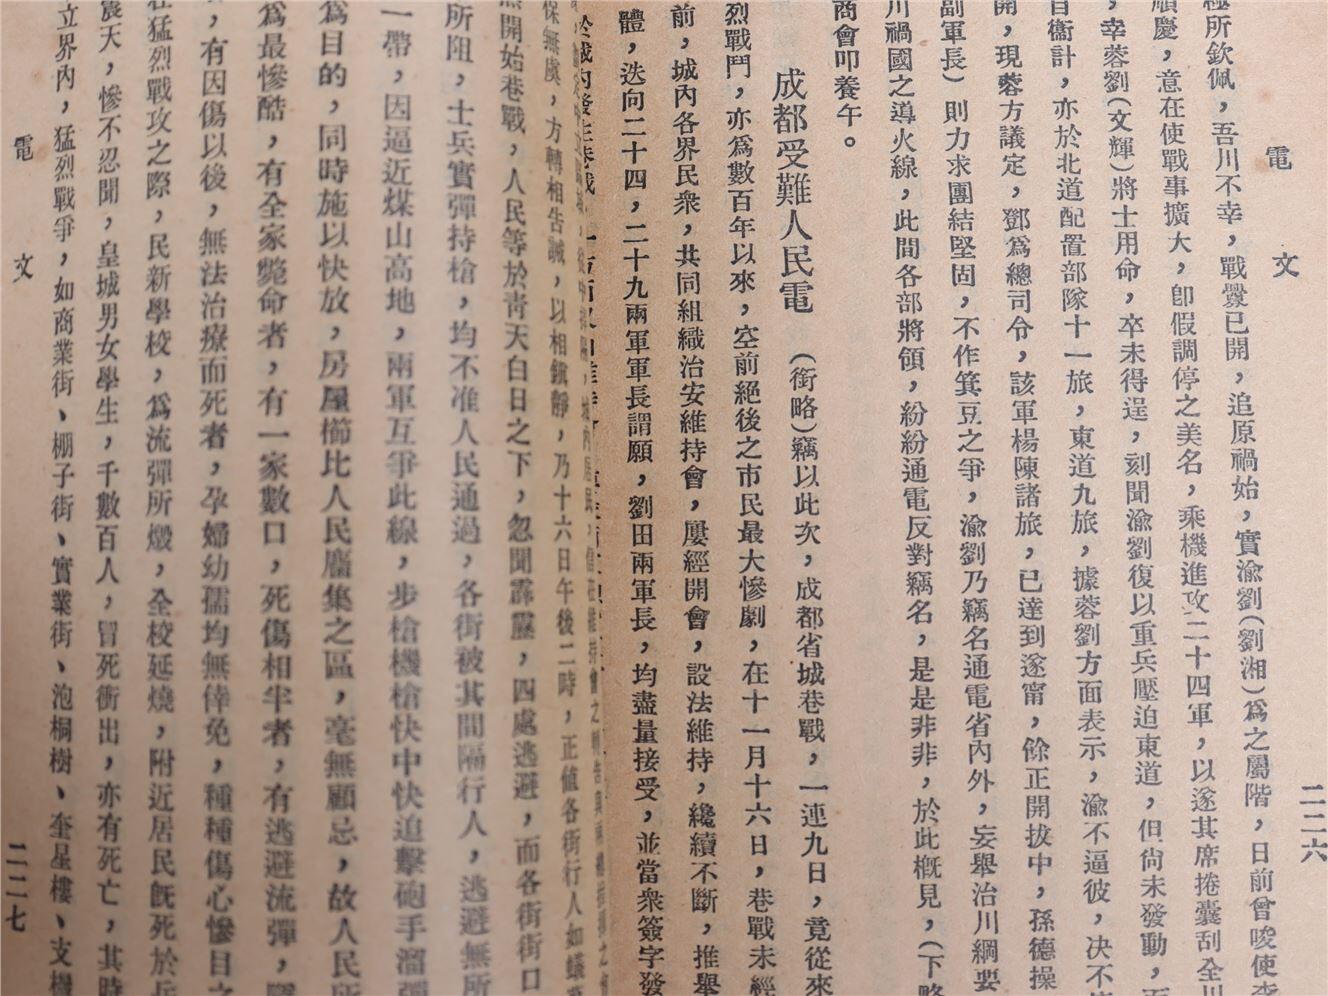 電 文 二二六
極所欽佩，吾川不幸，戰釁已開，追原禍始，實渝劉(劉湘)爲之厲階，日前曾唆使李
順慶，意在使戰事擴大，卽假調停之美名，乘機進攻二十四軍，以遂其席捲囊刮全川
，幸蓉劉(文輝)將士用命，卒未得逞，刻聞渝劉復以重兵壓迫東道，但尙未發動，
自衞計，亦於北道配置部隊十一旅，東道九旅，據蓉劉方面表示，渝不逼彼，决不
開，現蓉方議定，鄧爲總司令，該軍楊陳諸旅，已達到遂甯，餘正開拔中，孫德操
副軍長）則力求團結堅固，不作箕豆之爭，渝劉乃竊名通電省內外，妄舉治川綱要
川禍國之導火線，此間各部將領，紛紛通電反對竊名，是是非非，於此概見，(下略
商會叩養午。
成都受難人民電 （銜略）竊以此次，成都省城巷戰，一連九日，竟從來
烈戰鬥，亦爲數百年以來，空前絕後之市民最大慘劇，在十一月十六日，巷戰未經
前，城內各界民衆，共同組織治安維持會，屢經開會，設法維持，纔續不斷，推舉
體，迭向二十四，二十九兩軍軍長謂願，劉田兩軍長，均盡量接受，並當衆簽字發
於城內發生巷戰
保無虞，方轉相告誡，以相鎮靜，乃十六日午後二時，正値各街行人如蟻
開始巷戰，人民等於靑天白日之下，忽聞霹靂，四處逃避，而各街街口
所阻，士兵實彈持槍，均不准人民通過，各街被其間隔行人，逃避無所
一帶，因逼近煤山高地，兩軍互爭此線，步槍機槍快中快追擊砲手溜彈
爲目的，同時施以快放，房屋櫛比人民麕集之區，毫無顧忌，故人民所
爲最慘酷，有全家斃命者，有一家數口，死傷相半者，有逃避流彈，
，有因傷以後，無法治療而死者，孕婦幼孺均無倖免，種種傷心慘目之
在猛烈戰攻之際，民新學校，爲流彈所燬，全校延燒，附近居民旣死於兵
震天，慘不忍聞，皇城男女學生，千數百人，冒死衝出，亦有死亡，其時
立界內，猛烈戰爭，如商業街、棚子街、實業街、泡桐樹、奎星樓、支機
電 文 二二七